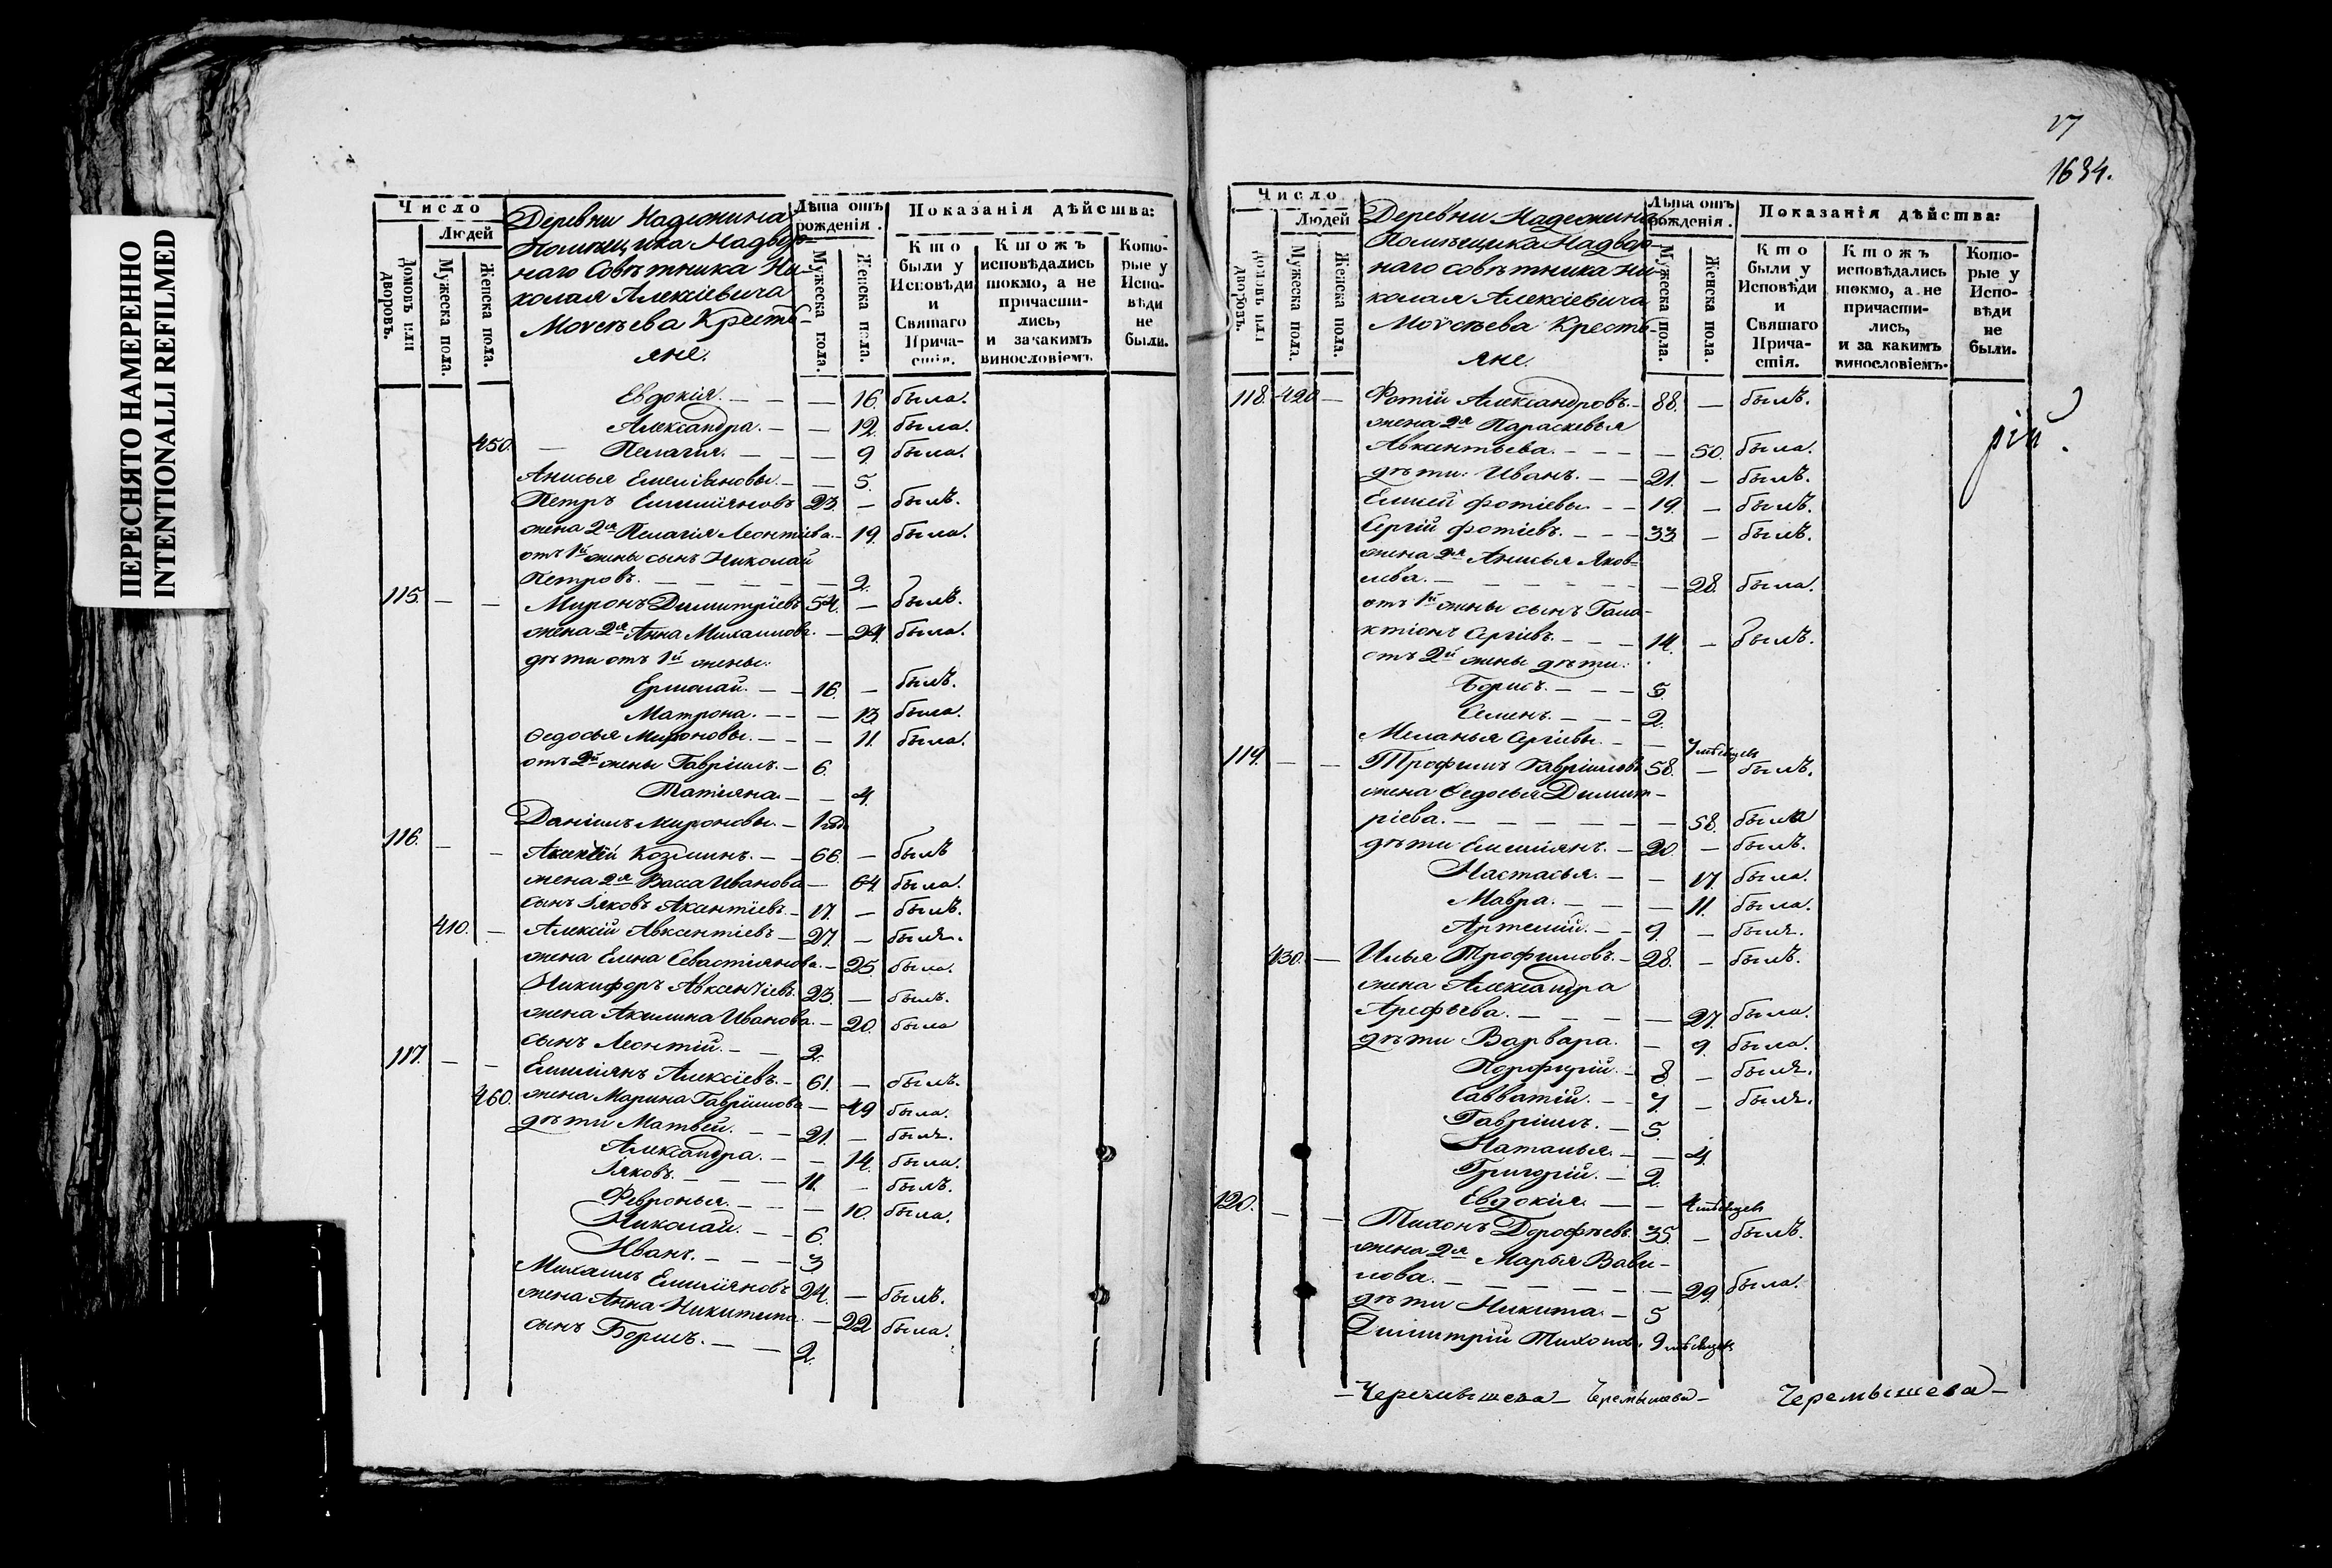 ПЕРЕСНЯТО НАМЕРЕННО
INTENTIONALLI REFILMED
Число
Людей
Домовъ или дворовъ.
Мужеска пола.
Женска пола.
Деревни Надежина
Помѣщика Надвор-
наго Совѣтника Ни-
колая Алексіевича
Моисѣева Кресть-
яне.
Лѣта отъ рожденія.
Мужеска пола.
Женска пола.
Показанія дѣйства:
Кто были у Исповѣди и Святаго Прича-стія.
Ктожъ исповѣдались токмо, а не причасти-лись, и за какимъ винословіемъ.
Кото-рые у Испо-вѣди не были.
Евдокія. — — — 16. была.
Александра. — — 12. была.
450. — Пелагія. — — — 9. была.
Анисья Емеліяновы. — — 5.
Петръ Емиліяновъ 23. — былъ.
жена 2я Пелагія Леонтіева. — 19. была.
отъ 1й жены сынъ Николай
Петровъ. — — — — — 2.
115. — — Миронъ Димитріевъ 54. — былъ.
жена 2я Анна Михаилова. — 24. была.
дѣти отъ 1й жены:
Ермолай. — — 16. — былъ.
Матрона. — — — 13. была.
Ѳедосья Мироновы. — — — 11. была.
отъ 2й жены Гавріилъ. — 6.
Татіяна. — — 4.
Даніилъ Мироновы. — 1 год.
116. — — Аксентій Козминъ. — — 66. — былъ
жена 2я Васса Иванова — 64. была.
сынъ Іаковъ Аксентіевъ. — 17. — былъ.
410. — Алексій Авксентіевъ — 27. — былъ.
жена Елена Севастіянова. — 25. была.
Никифоръ Авксентіевъ. 23. — былъ.
жена Акилина Иванова. — 20. была
сынъ Леонтій. — — 2.
117. — — Емиліянъ Алексіевъ. — 61. — былъ.
460. жена Марина Гавріилова — 49 была.
дѣти Матвей. — — 21. — былъ.
Александра. — — 14. была.
Іяковъ. — — — 11. — былъ.
Февронья. — — — 10. была.
Николай. — — 6.
Иванъ. — — — 3
Михаилъ Емиліяновъ 24. — былъ.
жена Анна Никитина. — 22 была.
сынъ Борисъ. — — 2.
17
1634.
Число
Людей
Домовъ или дворовъ.
Мужеска пола.
Женска пола.
Деревни Надежина
Помѣщика Надвор-
наго совѣтника Ни-
колая Алексіевича
Моисѣева Кресть-
яне.
Лѣта отъ рожденія.
Мужеска пола.
Женска пола.
Показанія дѣйства:
Кто были у Исповѣди и Святаго Прича-стія.
Ктожъ исповѣдались токмо, а не причасти-лись, и за какимъ винословіемъ.
Кото-рые у Испо-вѣди не были.
118. 420 — Фотій Александровъ. — 88. — былъ.
рій.
жена 2я Параскевья
Авксентьева. — — — — 50. была.
дѣти: Иванъ. — — 21. — былъ.
Елисей Фотіевы. — — 19. — былъ.
Сергій Фотіевъ. — — — 33. — былъ.
жена 2я Анисья Яков-
лева. — — — — — — 28. была.
отъ 1й жены сынъ Гала-
ктіонъ Сергіевъ. — — — 14. — былъ.
отъ 2й жены дѣти:
Борисъ. — — — 5.
Семенъ. — — — 2.
Меланья Сергіевы. — — 7 мѣсяцевъ
119. — — Трофимъ Гавріиловъ 58. — былъ.
жена Ѳедосья Димит-
ріева. — — — — — — 58. была
дѣти Емиліянъ. — 20. — былъ.
Настасья. — — 17. была.
Мавра. — — — 11. была.
Артемій. — — 9. — былъ.
430. — Илья Трофимовъ. — 28. — былъ.
жена Александра
Арефьева. — — — — — 27. была.
дѣти Варвара. — 9. была.
Порфирій. — 8. — былъ.
Савватій. — — 7. — былъ.
Гавріилъ. — 5.
Наталья. — — 4.
Григорій. — 2.
Евдокія. — — 4 мѣсяцевъ
120. — — Тихонъ Дорофѣевъ. 35. — былъ.
жена 2я Марья Вави-
лова. — — — — — — 29. была.
дѣти Никита. — 5
Димитрій Тихоновы 9 мѣсяцевъ
— Черемышева — Черемышева — Черемышева —